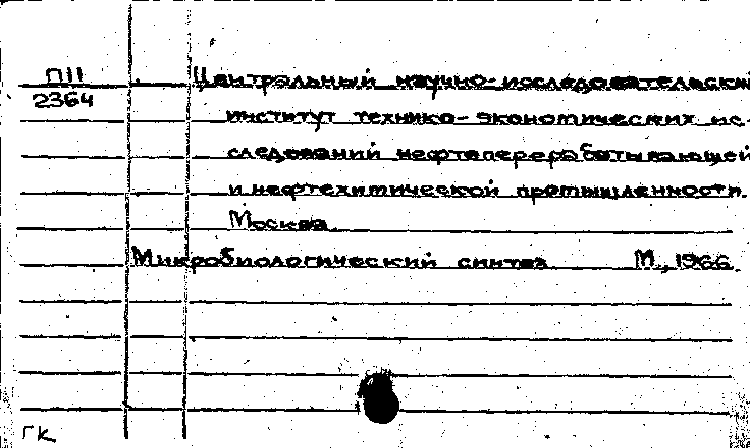 П11
2364
Центральный научно-исследовательский
институт технико-экономических ис-
следований нефтеперерабатывающей
и нефтехимической промышленности.
Москва.
Микробиологический синтез М., 1966.
ГК